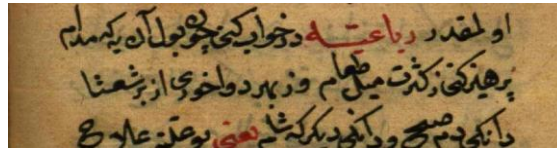 او لمقدر رباعیه در خواب کنی چون بول آن به که مدام
پرهیز کنی ز کثرت میل طعام وز بهر دوا خوری از بزشعثا
دانکی دم صبح و دانکی دیکر که شام یعنی بوعلته علاج